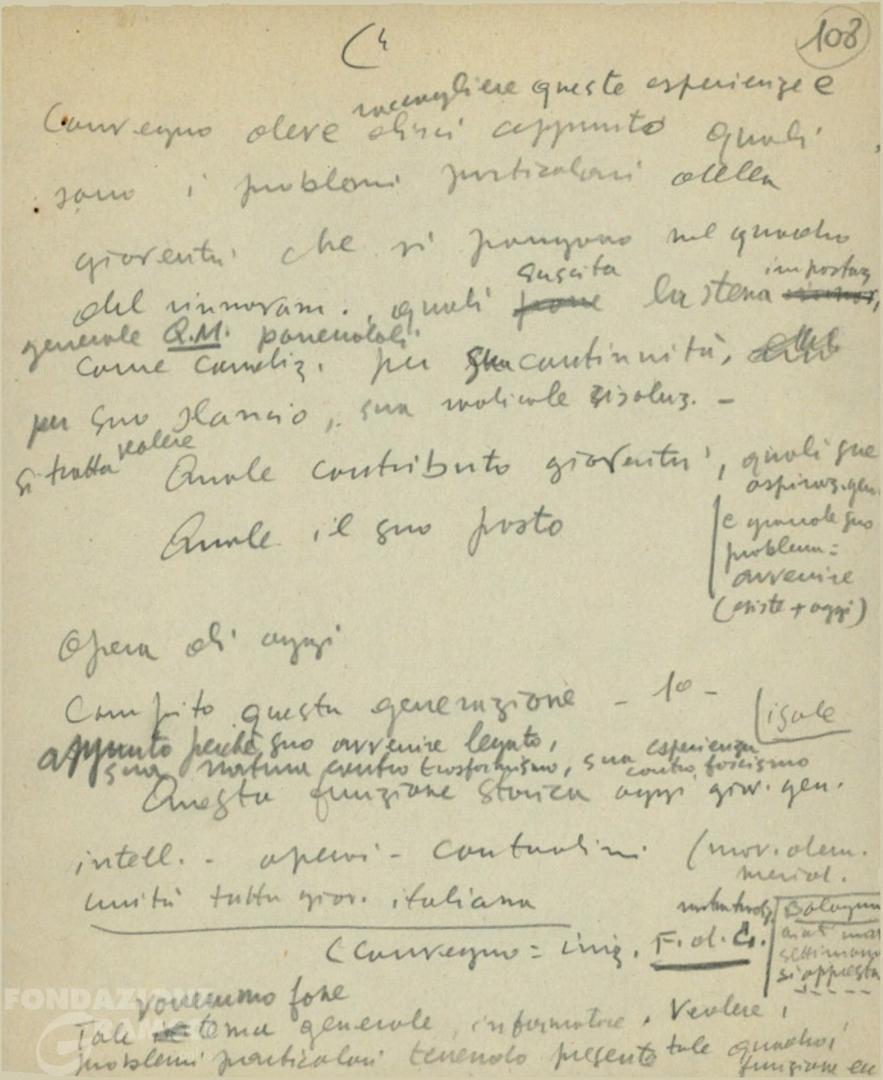 (4
108
raccogliere queste esperienze e
Convegno deve dirci appunto quali
sono i problemi particolari della
gioventù che si pongono nel quadro
del rinnovam., quali suscita la stessa impostaz.
generale Q.M. ponendoli
come condiz. per sua continuità,
per suo slancio, sua radicale risoluz. -
si tratta vedere
Quale contributo gioventù, quali sue
aspiraz. gen.
Quale il suo posto
e grande suo
problema =
avvenire
(esiste + oggi)
Opera di oggi
Compito questa generazione - 1º -
isole
appunto perché suo avvenire legato,
sua natura contro trasformismo, sua esperienza
contro fascismo
Questa funzione storica oggi giov. gen.
intell. - operai - contadini (mov. dem.
merid.
unità tutta giov. italiana
Bologna
(Convegno = iniz. F.d.G.
settimana
si appresta
vorremmo fare
Tale tema generale, informatore. Vedere i
problemi particolari tenendo presente tale quadro,
funzione
FONDAZIONE
GRAMSCI